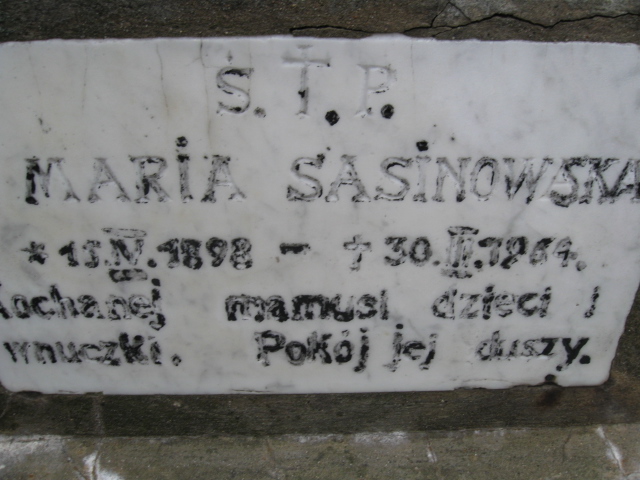 Ś. † P.
MARIA SASINOWSKA
* 15.IV.1898 - † 30.III.1964.
Kochanej mamusi dzieci i
wnuczki. Pokój jej duszy.